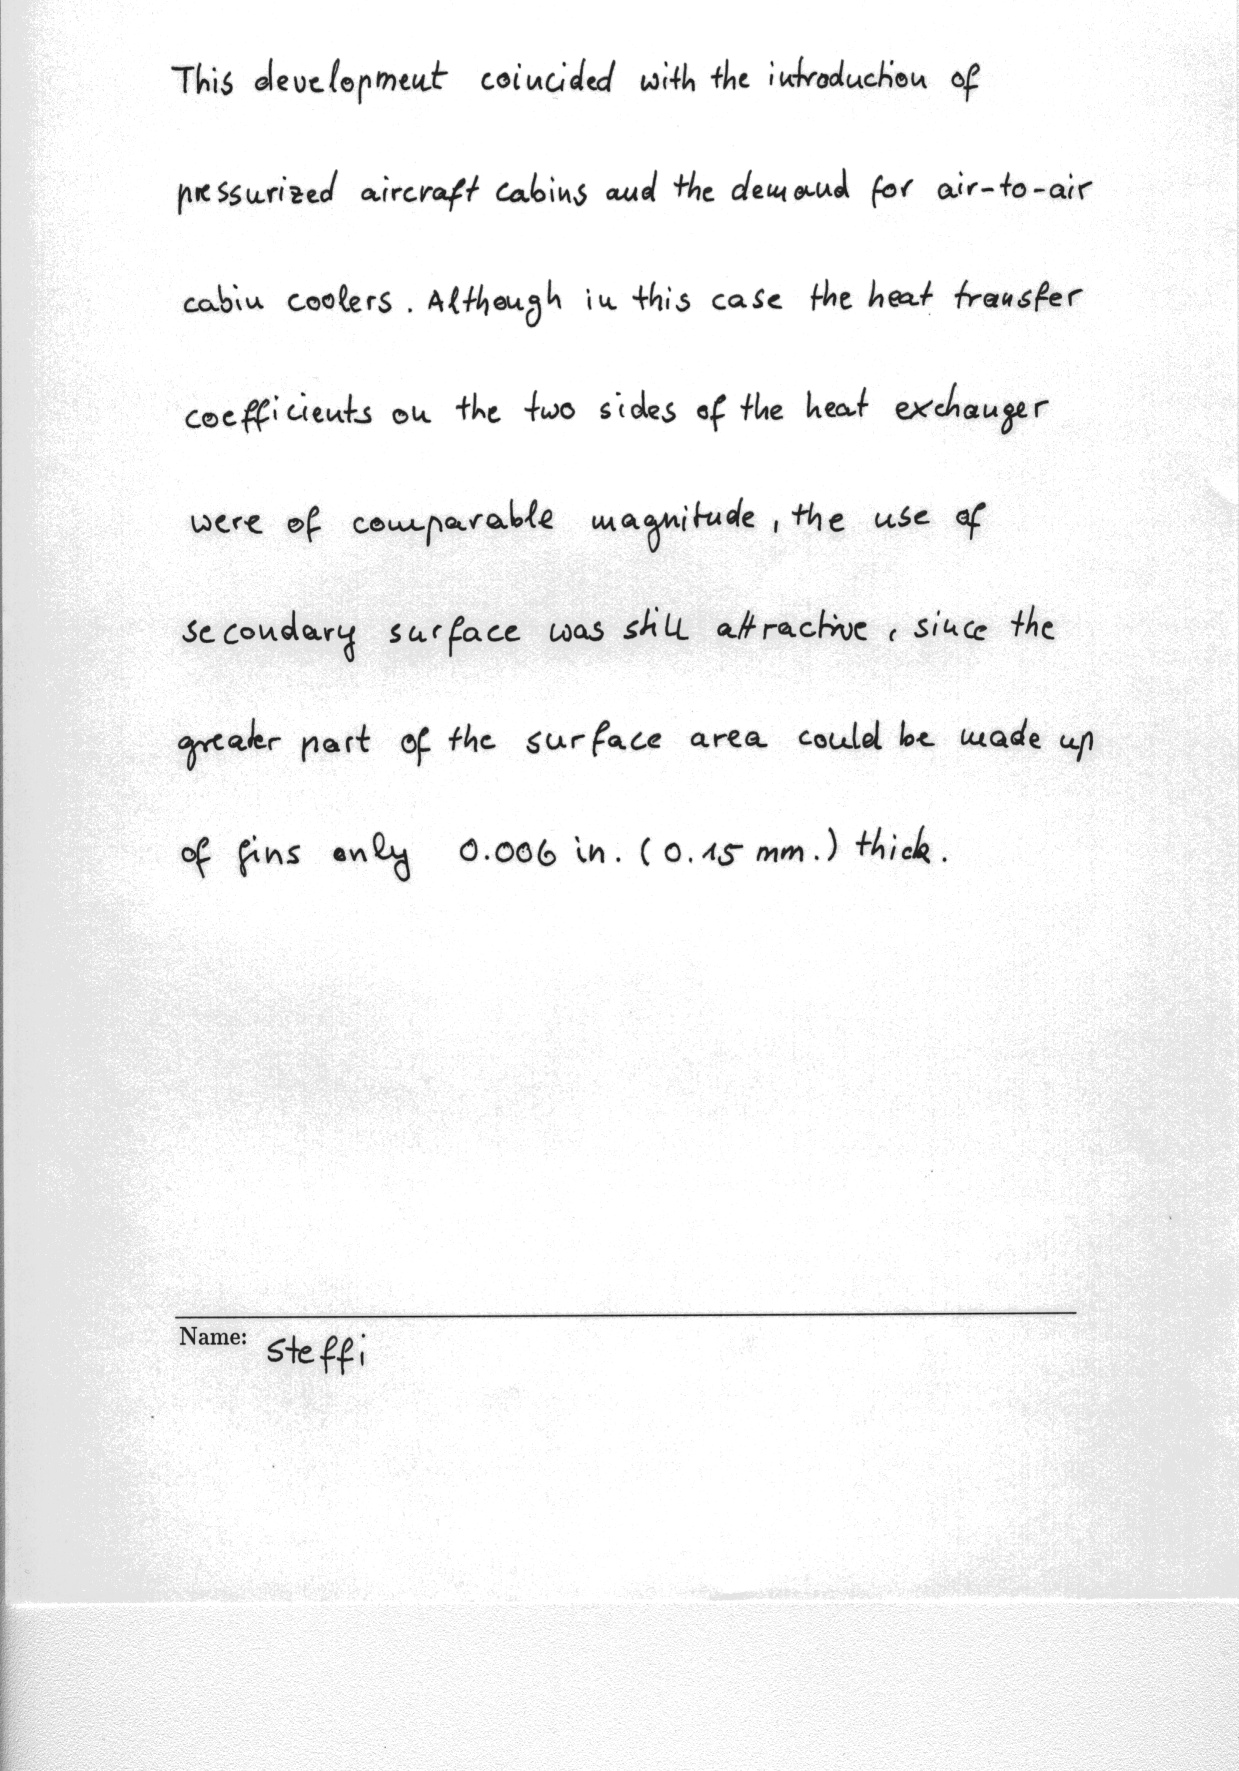 This development coincided with the introduction of
pressurized aircraft cabins and the demand for air-to-air
cabin coolers. Although in this case the heat transfer
coefficients on the two sides of the heat exchanger
were of comparable magnitude, the use of
secondary surface was still attractive, since the
greater part of the surface area could be made up
of fins only 0.006 in. (0.15 mm.) thick.
Name: Steffi